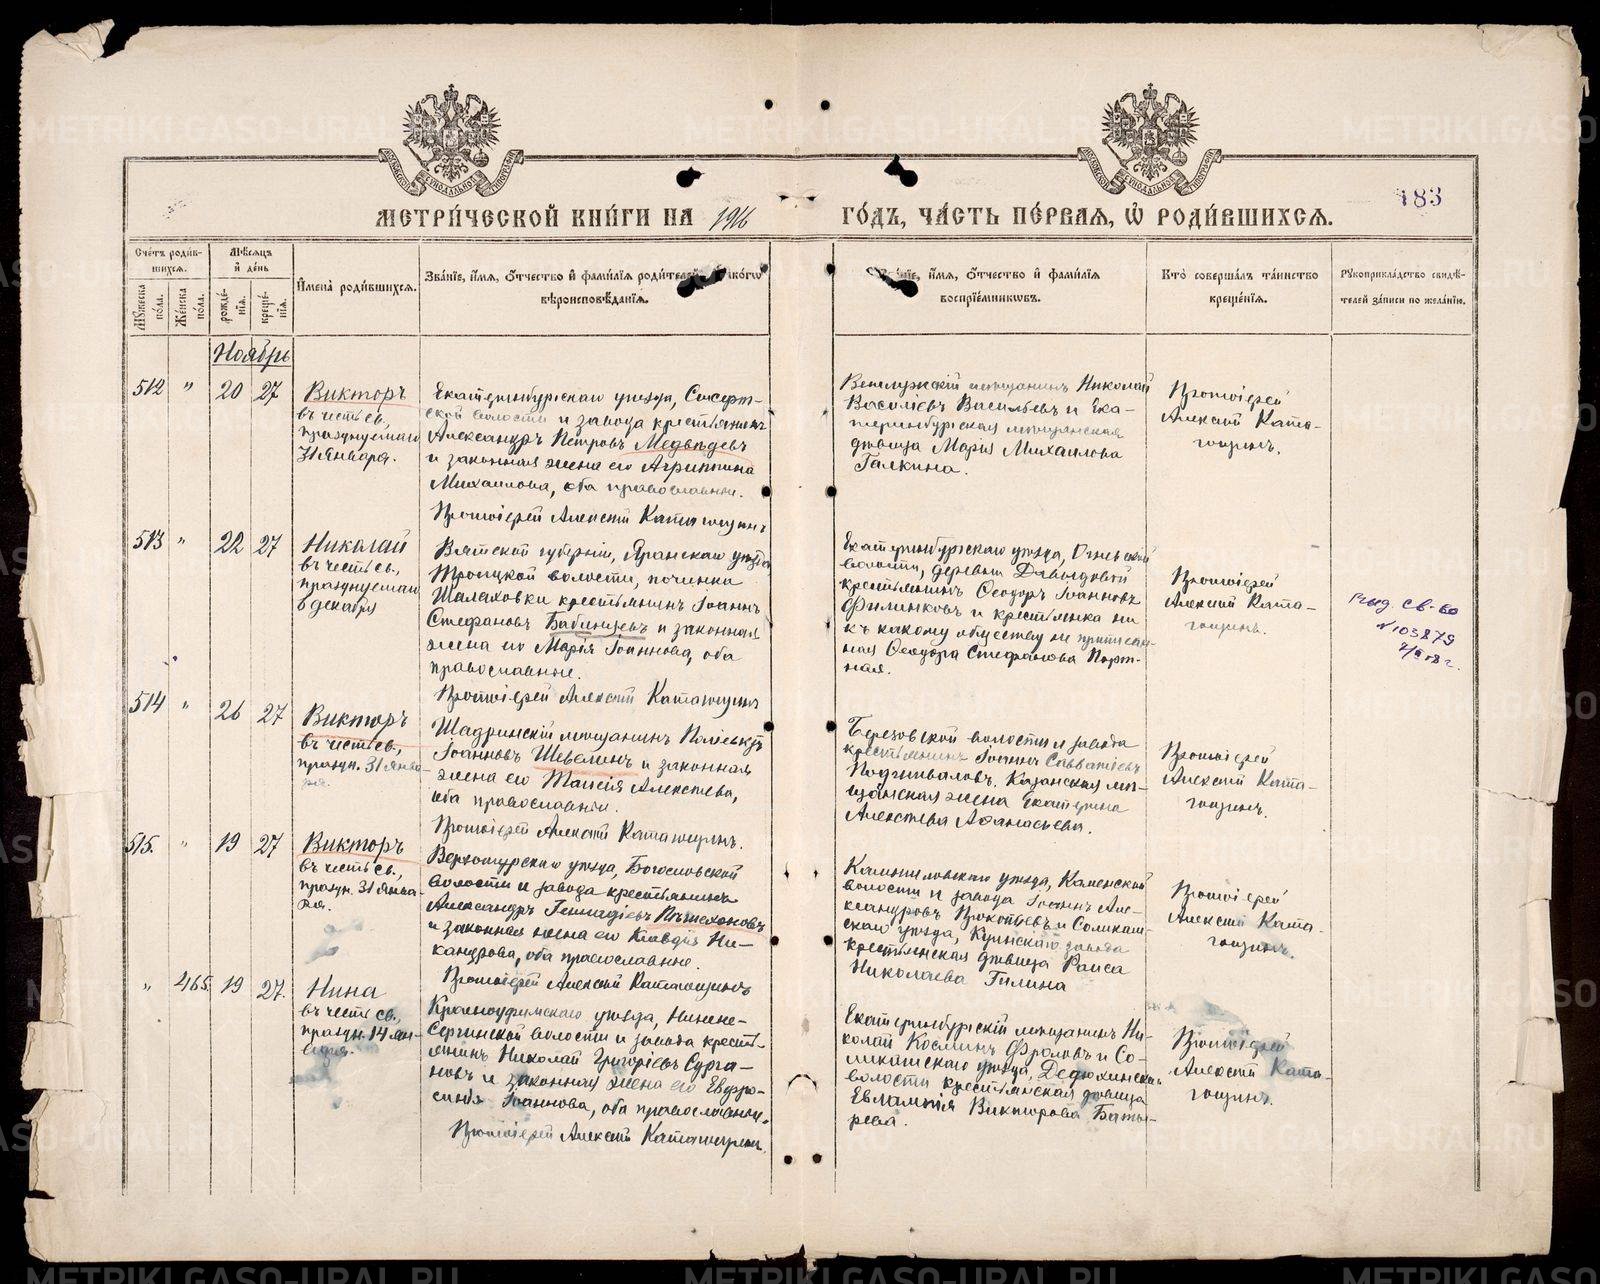 METRIKI.GASO-URAL.RU
МОСКОВСКОЙ СѴНОДАЛЬНОЙ ТИПОГРАФІИ
МОСКОВСКОЙ СѴНОДАЛЬНОЙ ТИПОГРАФІИ
183
МЕТРИ́ЧЕСКОЙ КНИ́ГИ НА 1916 ГО́ДЪ, ЧА́СТЬ ПЕ́РВАЯ, Ѡ҆ РОДИ́ВШИХСЯ.
Сче́тъ роди́в-
шихся.
Му́жеска по́ла.
Же́нска по́ла.
Мѣ́сяцъ
и҆ де́нь
рожде́-
нїя.
креще́-
нїя.
И҆мена̀ роди́вшихся.
Зва́нїе, и҆́мя, ѻ҆́тчество и҆ фами́лїя роди́телей, и҆ како́гѡ
вѣроисповѣ́данїя.
и҆́мя, ѻ҆́тчество и҆ фами́лїя
воспрїе́мникѡвъ.
Кто̀ соверша́лъ та́инство
креще́нїя.
Рꙋкоприкла́дство свидѣ́-
телей за́писи по жела́нїю.
Ноябрь
512 " 20 27
Викторъ
въ честь св.,
празднуемаго
31 Января.
Екатеринбургскаго уѣзда, Сысерт-
ской волости и завода крестьянинъ
Александръ Петровъ Медвѣдевъ
и законная жена его Агриппина
Михаилова, оба православные.
Протоіерей Алексій Каташинъ
мѣщанинъ Николай
Василіевъ Васильевъ и Ека-
теринбургская мѣщанская
дѣвица Марія Михаилова
Галкина.
Протоіерей
Алексій Ката-
513 " 22 27
Николай
въ честь св.,
празднуемаго
6 декабря
Вятской губерніи, Яранскаго уѣзда
Троицкой волости, починка
Шалаховки крестьянинъ Іоаннъ
Стефановъ Бабинцевъ и законная
жена его Марія Іоаннова, оба
православные.
Протоіерей Алексій
Екатеринбургскаго уѣзда,
волости, деревни Давыдовой
крестьянинъ Ѳеодоръ Іоанновъ
Филинковъ и крестьянка ни
къ какому обществу не приписан-
ная Ѳеодора Стефанова Порт-
ная.
Протоіерей
Алексій Ката-
выд. св-во
№103879
514 " 26 27
Викторъ
въ честь св.,
праздн. 31 Янва-
ря.
Шадринскій мѣщанинъ
Іоанновъ Шевелинъ и законная
жена его Таисія Алексѣева,
оба православные.
Протоіерей Алексій
Березовской волости и завода
крестьянинъ Іоаннъ Савватіевъ
Подживаловъ. Казанская мѣ-
щанская жена Екатерина
Алексѣева Аѳанасьева.
Протоіерей
Алексій Ката-
515. " 19 27
Викторъ
въ честь св.,
праздн. 31 Янва-
ря.
Верхотурскаго уѣзда, Богословской
волости и завода крестьянинъ
Александръ Геннадіевъ Пѣшехоновъ
и законная жена его Клавдія Ни-
кандрова, оба православные.
Протоіерей Алексій
Камышловскаго уѣзда, Каменской
волости и завода Іоаннъ Але-
ксандровъ Прокопьевъ и Соликам-
скаго уѣзда, завода
крестьянская дѣвица Раиса
Николаева Гилина
Протоіерей
Алексій Ката-
" 465. 19 27.
Нина
въ честь св.,
праздн. 14 Ян-
варя.
Красноуфимскаго уѣзда, Нижне-
Сергинской волости и завода кресть-
янинъ Николай Григорьевъ Сурга-
новъ и законная жена его Евфро-
синія Іоаннова, оба православные.
Протоіерей Алексій
Екатеринбургскій мѣщанинъ Ни-
колай Космичъ Фроловъ и Со-
ликамскаго уѣзда, Дедюхинской
волости крестьянская дѣвица
Евлампія Викторова Баты-
рева.
Протоіерей
Алексій Ката-